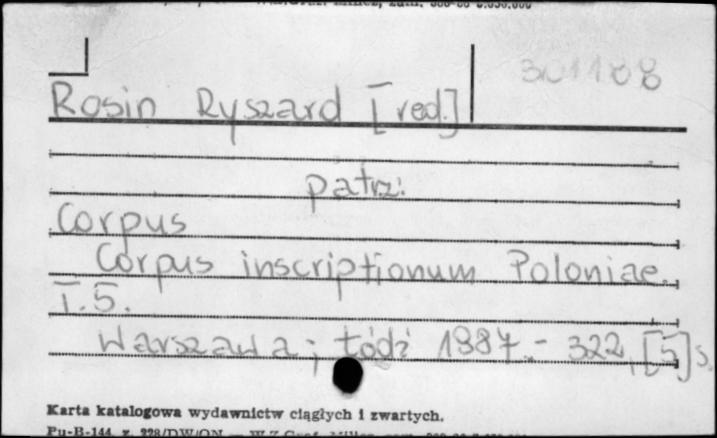 301188
Rosin Ryszard [red.]
patrz:
Corpus
Corpus inscriptionum Poloniae.
T.5.
Warszawa; Łódź 1987.- 322, [5] s.
Karta katalogowa wydawnictw ciągłych i zwartych.